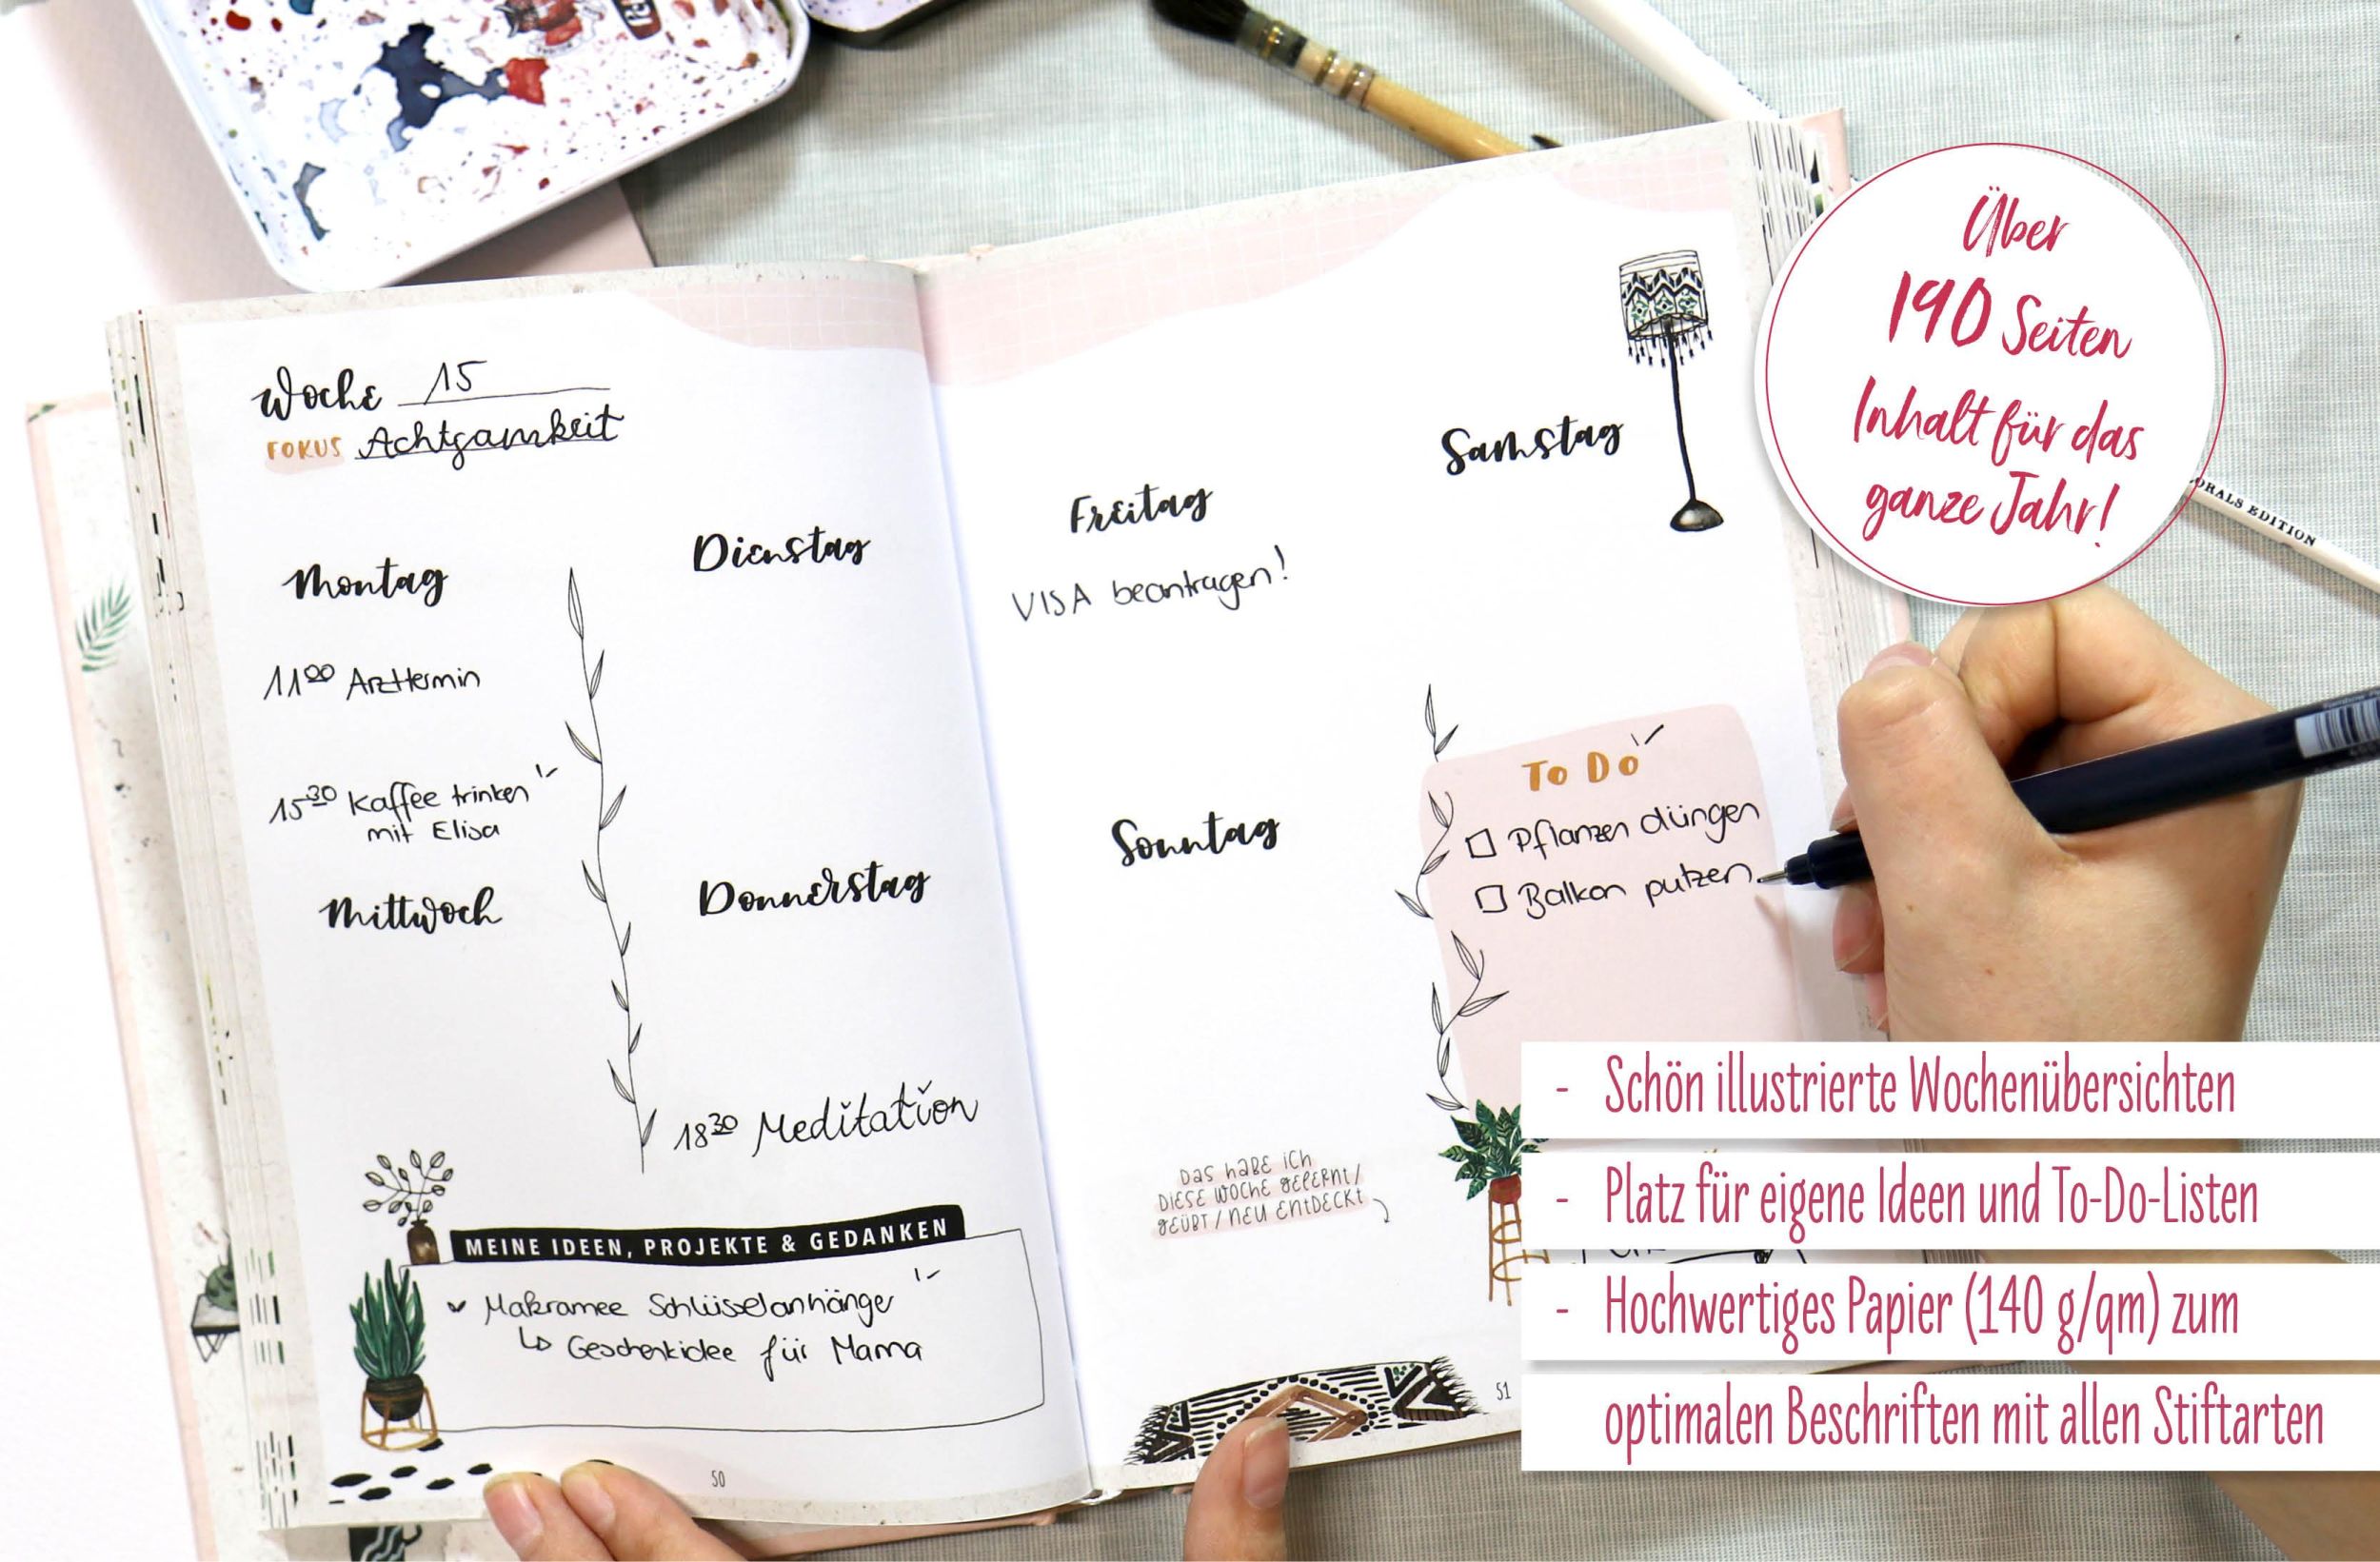 Woche 15
FOKUS Achtsamkeit
Montag
11⁰⁰ Arzttermin
15³⁰ Kaffee trinken
mit Elisa
Mittwoch
Dienstag
Donnerstag
18³⁰ Meditation
MEINE IDEEN, PROJEKTE & GEDANKEN
Makramee Schlüsselanhänger
↳ Geschenkidee für Mama
50
Freitag
VISA beantragen!
Samstag
Sonntag
To Do
☐ Pflanzen düngen
☐ Balkon putzen
Das habe ich
diese Woche gelernt/
geübt/neu entdeckt
51
Über
190 Seiten
Inhalt für das
ganze Jahr!
ORALS EDITION
- Schön illustrierte Wochenübersichten
- Platz für eigene Ideen und To-Do-Listen
- Hochwertiges Papier (140 g/qm) zum
optimalen Beschriften mit allen Stiftarten